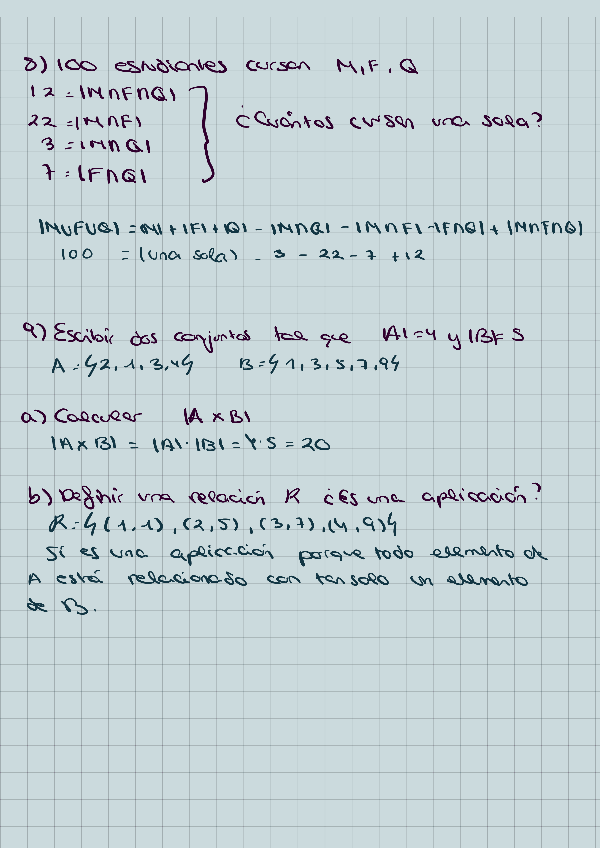 8) 100 estudiantes cursan M, F, Q
12 = |M∩F∩Q|
22 = |M∩F|
3 = |M∩Q|
7 = |F∩Q|
¿Cuántos cursan una sola?
|M∪F∪Q| = |M| + |F| + |Q| - |M∩Q| - |M∩F| - |F∩Q| + |M∩F∩Q|
100 = (una sola) - 3 - 22 - 7 + 12
9) Escribir dos conjuntos tal que |A|=4 y |B|=5
A = {2, 1, 3, 4} B = {1, 3, 5, 7, 9}
a) Calcular |A × B|
|A × B| = |A| · |B| = 4 · 5 = 20
b) Definir una relación R ¿Es una aplicación?
R = {(1,1), (2,5), (3,7), (4,9)}
Sí es una aplicación porque todo elemento de
A está relacionado con tan solo un elemento
de B.